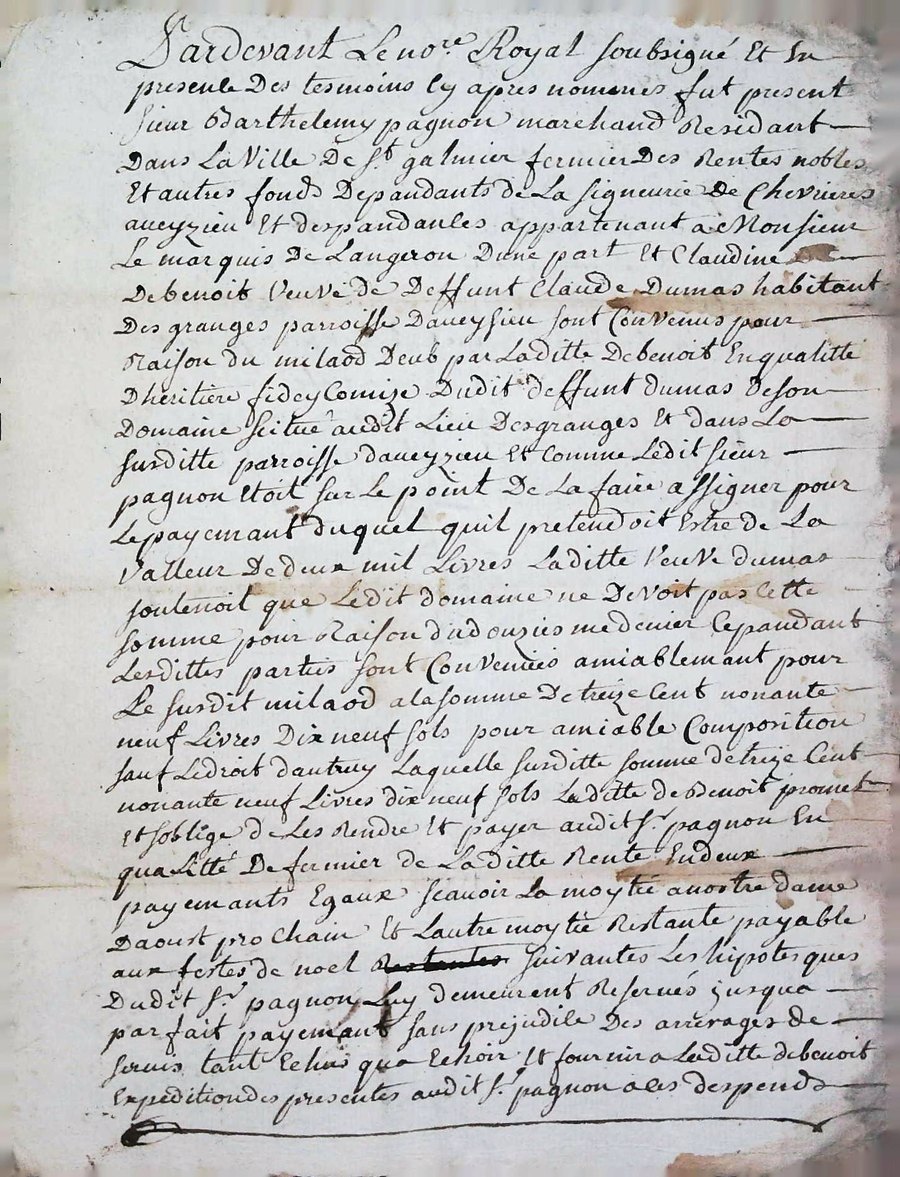 Pardevant Le nore Royal soubsigné Et En
presence Des tesmoins Cy apres nommés fut present
sieur Barthelemy pagnon marchand Residant
Dans La Ville De St galmier fermier Des Rentes nobles
Et autres fonds Depandants de La signeurie de Chevrieres
aveyzieu Et despandances appartenant a Monsieur
Le marquis De Langeron Dune part Et Claudine
Debenoit Veuve de Deffunt Claude Dumas habitant
Des granges parroisse Daveysieu sont Convenus pour
Raison du milaod Deub par Laditte Debenoit En qualitté
Dheritiere fideyComise Dudit deffunt dumas De son
Domaine scitué audit Lieu Desgranges Et dans La
susditte parroisse daveyzieu Et Comme Ledit sieur
pagnon Etoit sur Le point De La faire assigner pour
Le payemant duquel quil pretendoit Estre de La
Valleur De deux mil Livres Laditte Veuve dumas
soutenoit que Ledit domaine ne Devoit pas Cette
somme pour Raison dudouziesme denier Cepandant
Lesdittes parties sont Conveniies amiablemant pour
Le susdit milaod a la somme De treize Cent nonante
neuf Livres Dix neuf sols pour amiable Composition
sauf Le droit dautruy Laquelle susditte somme de treize Cent
nonante neuf Livres dix neuf sols Laditte de Benoit promet
Et soblige de Les Rendre Et payer audit sr pagnon En
qualitté De fermier de Laditte Rente En deux
payemants Egaux scavoir La moytiée a nostre dame
Daoust prochain Et Lautre moytiée Restante payable
aux festes de noel Restantes suivantes Les hipotesques
Dudit sr pagnon Luy demeurent Reservés jusqua
parfait payemant sans prejudice Des arrerages de
servis tant Echus qua Echoir Et fournira Laditte debenoit
Expedition des presentes audit sr pagnon a ces despends